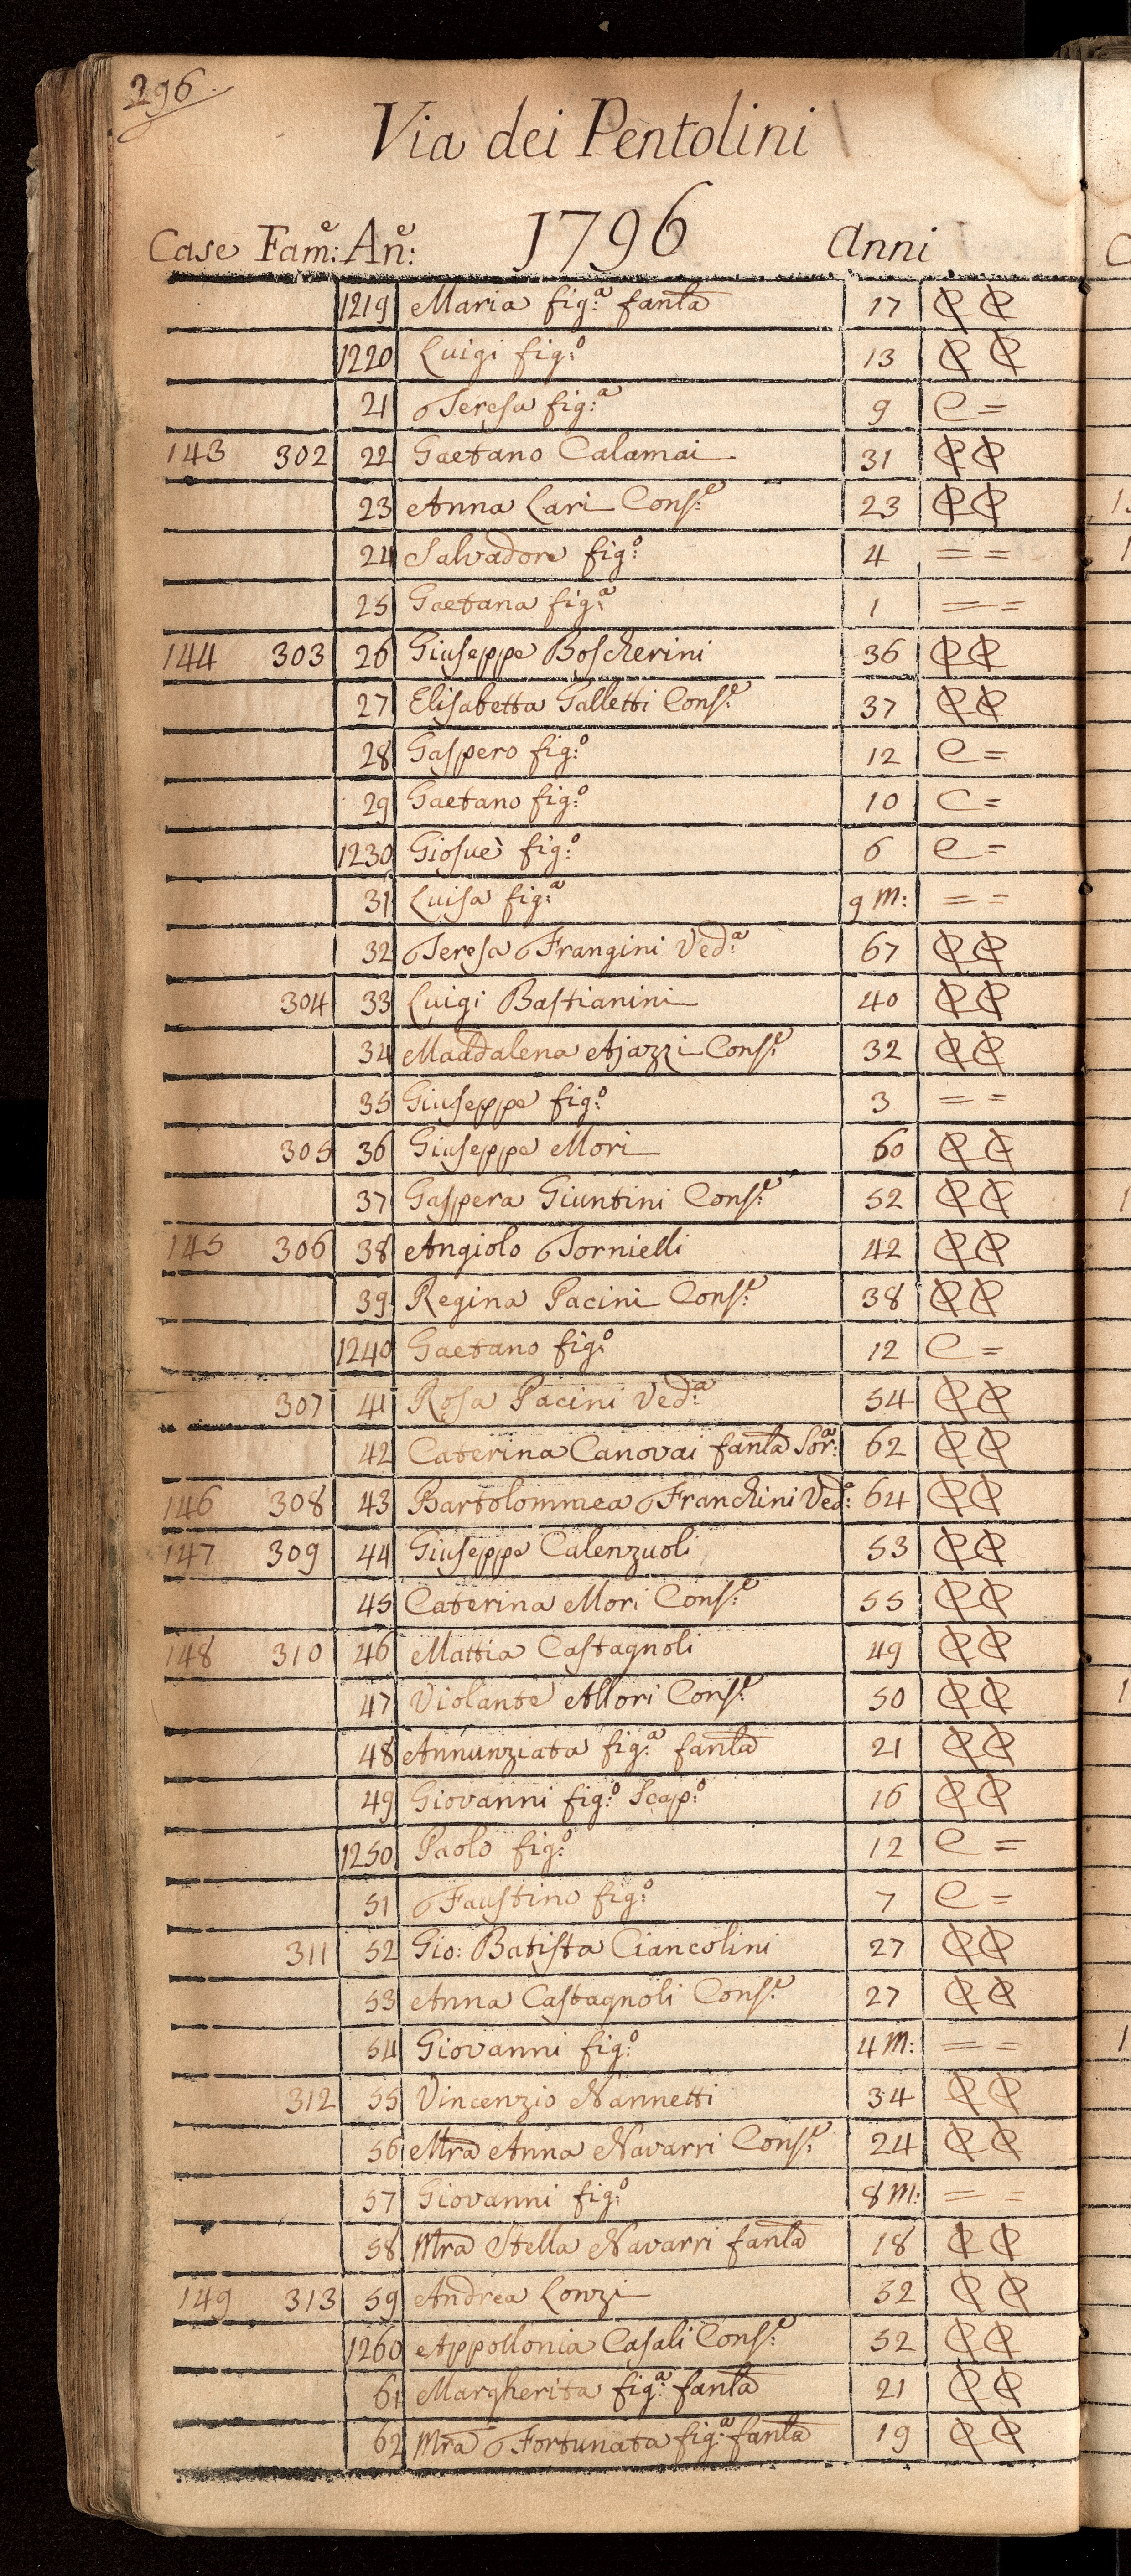 296
Via dei Pentolini
1796
Case Fam:e An:e Anni
1219 Maria fig:a fanla 17 C C
1220 Luigi fig:o 13 C C
21 Teresa fig:a 9 C =
143 302 22 Gaetano Calamai 31 C C
23 Anna Lari Cons:e 23 C C
24 Salvadore fig:o 4 = =
25 Gaetana fig:a 1 = =
144 303 26 Giuseppe Boscherini 36 C C
27 Elisabetta Galletti Cons:e 37 C C
28 Gaspero fig:o 12 C =
29 Gaetano fig:o 10 C =
1230 Giosuè fig:o 6 C =
31 Luisa fig:a 9 M: = =
32 Teresa Frangini Ved:a 67 C C
304 33 Luigi Bastianini 40 C C
34 Maddalena Ajazzi Cons:e 32 C C
35 Giuseppe fig:o 3 = =
305 36 Giuseppe Mori 60 C C
37 Gaspera Giuntini Cons:e 52 C C
145 306 38 Angiolo Tornielli 42 C C
39 Regina Pacini Cons:e 38 C C
1240 Gaetano fig:o 12 C =
307 41 Rosa Pacini Ved:a 54 C C
42 Caterina Canovai fanla Sor:a 62 C C
146 308 43 Bartolommea Franchini Ved:a 64 C C
147 309 44 Giuseppe Calenzuoli 53 C C
45 Caterina Mori Cons:e 55 C C
148 310 46 Mattia Castagnoli 49 C C
47 Violante Allori Cons:e 50 C C
48 Annunziata fig:a fanla 21 C C
49 Giovanni fig:o Scap:o 16 C C
1250 Paolo fig:o 12 C =
51 Faustino fig:o 7 C =
311 52 Gio: Batista Ciancolini 27 C C
53 Anna Castagnoli Cons:e 27 C C
54 Giovanni fig:o 4 M: = =
312 55 Vincenzio Nannetti 34 C C
56 Mra Anna Navarri Cons:e 24 C C
57 Giovanni fig:o 8 M: = =
58 Mra Stella Navarri fanla 18 C C
149 313 59 Andrea Lonzi 52 C C
1260 Appollonia Casali Cons:e 52 C C
61 Margherita fig:a fanla 21 C C
62 Mra Fortunata fig:a fanla 19 C C